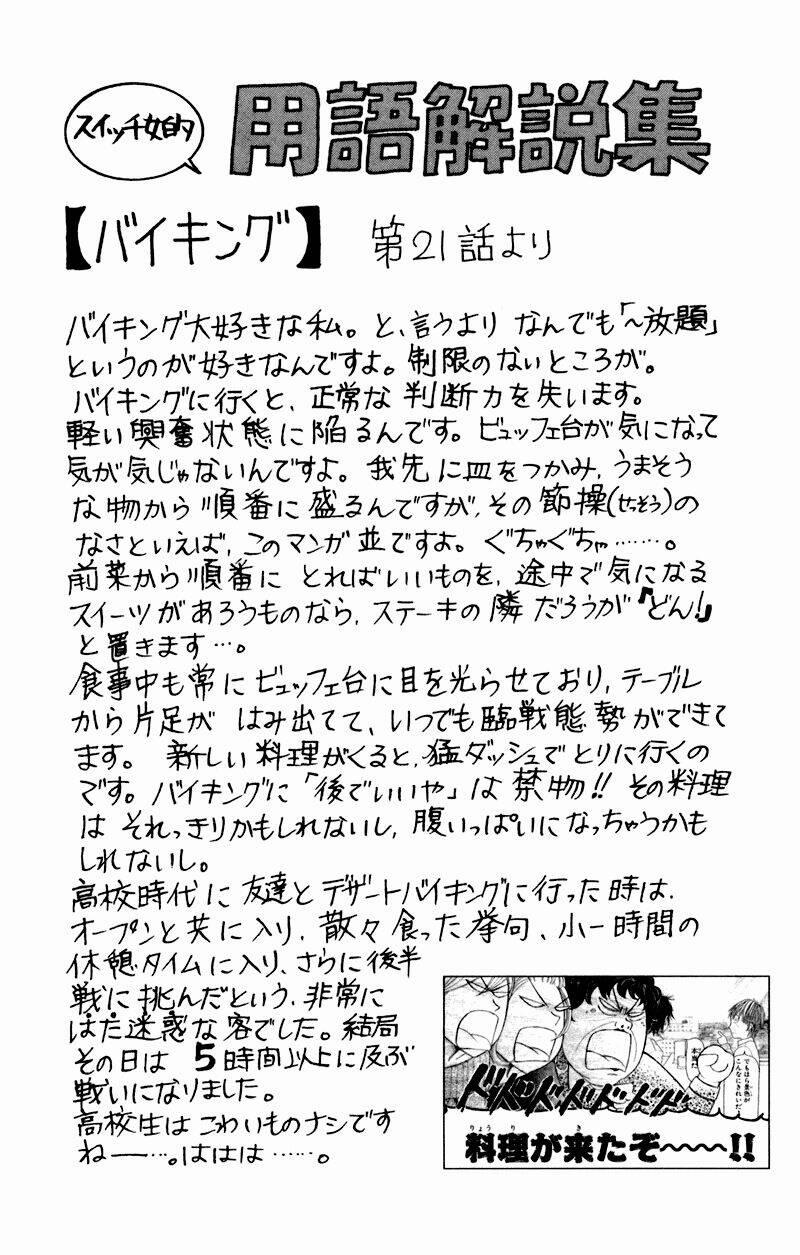 スイッチ女的
用語解説集
【バイキング】 第21話より
バイキング大好きな私。と、言うより なんでも「〜放題」
というのが好きなんですよ。制限のないところが。
バイキングに行くと、正常な判断力を失います。
軽い興奮状態に陥るんです。ビュッフェ台が気になって
気が気じゃないんですよ。我先に皿をつかみ、うまそう
な物から順番に盛るんですが、その節操(せっそう)の
なさといえば、このマンガ並ですよ。ぐちゃぐちゃ………。
前菜から順番に とればいいものを、途中で気になる
スイーツがあろうものなら、ステーキの隣だろうが『どん!』
と置きます…。
食事中も常にビュッフェ台に目を光らせており、テーブル
から片足が はみ出てて、いつでも臨戦態勢ができて
ます。 新しい料理がくると、猛ダッシュでとりに行くの
です。バイキングに「後でいいや」は禁物!!その料理
は それっきりかもしれないし、腹いっぱいになっちゃうかも
しれないし。
高校時代に友達とデザートバイキングに行った時は、
オープンと共に入り、散々食った挙句、小一時間の
休憩タイムに入り、さらに後半
戦に挑んだという、非常に
はた迷惑な客でした。結局
その日は 5時間以上に及ぶ
戦いになりました。
高校生はこわいものナシです
ねー…。ははは……。
でもほら景色が
こんなにきれいだ
本当だ
ドドドドドドド
りょうり き
料理が来たぞ〜〜〜〜!!